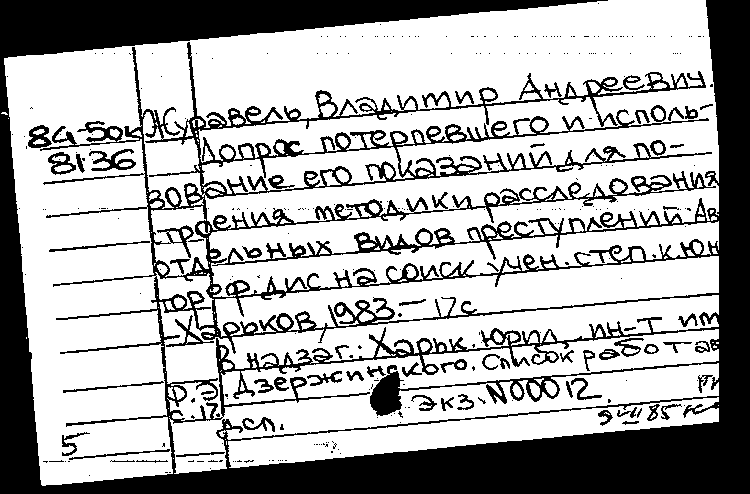 84-50к Журавель, Владимир Андреевич.
8136 Допрос потерпевшего и исполь-
зование его показаний для по-
строения методики расследования
отдельных видов преступлений: Ав
тореф. дис на соиск учен. степ. к. юн
-Харьков, 1983. - 17 с
В надзаг.: Харьк. юрид. ин-т им
Ф. Э. Дзержинского. Список работ ав
с. 17. Экз. N00012.
5 дсп.
85